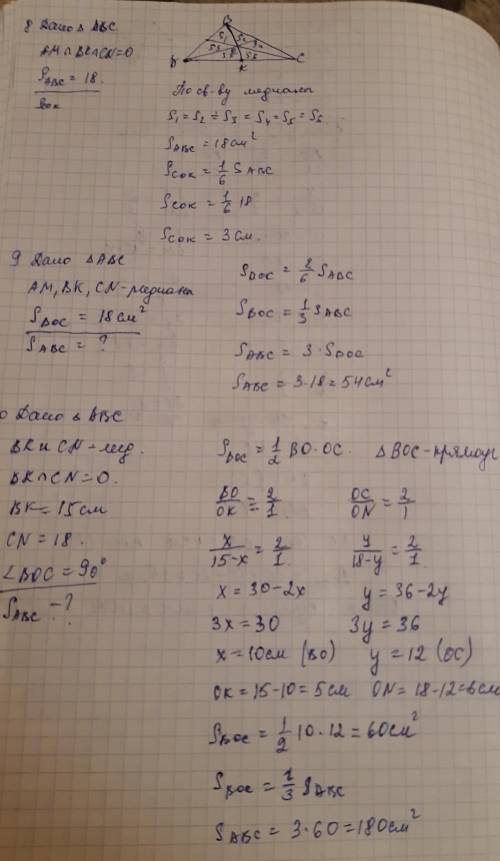 8 Дано Δ ABC
AM∩BK∩CN=O
S ABC = 18.
S COK
B
S₁ S₂
S₃ S₅
K C
По св-ву медианы
S₁ = S₂ = S₃ = S₄ = S₅ = S₆
S ABC = 18 см²
S COK = 1/6 S ABC
S COK = 1/6 18
S COK = 3 см.
9 Дано ΔABC
AM, BK, CN-медианы
S BOC = 18 см²
S ABC = ?
S BOC = 2/6 S ABC
S BOC = 1/3 S ABC
S ABC = 3 · S BOC
S ABC = 3·18 = 54 см²
0 Дано Δ ABC
BK и CN – мед.
BK∩CN=O.
BK = 15 см
CN = 18.
∠BOC = 90°
S ABC – ?
S BOC = 1/2 BO·OC. Δ BOC-прямоуг
BO/OK = 2/1 OC/ON = 2/1
x/15-x = 2/1 y/18-y = 2/1
x = 30-2x y = 36-2y
3x = 30 3y = 36
x = 10 см (BO) y = 12 (OC)
OK = 15-10 = 5 см ON = 18-12=6 см
S BOC = 1/2 10·12 = 60 см²
S BOC = 1/3 S ABC
S ABC = 3·60 = 180 см²